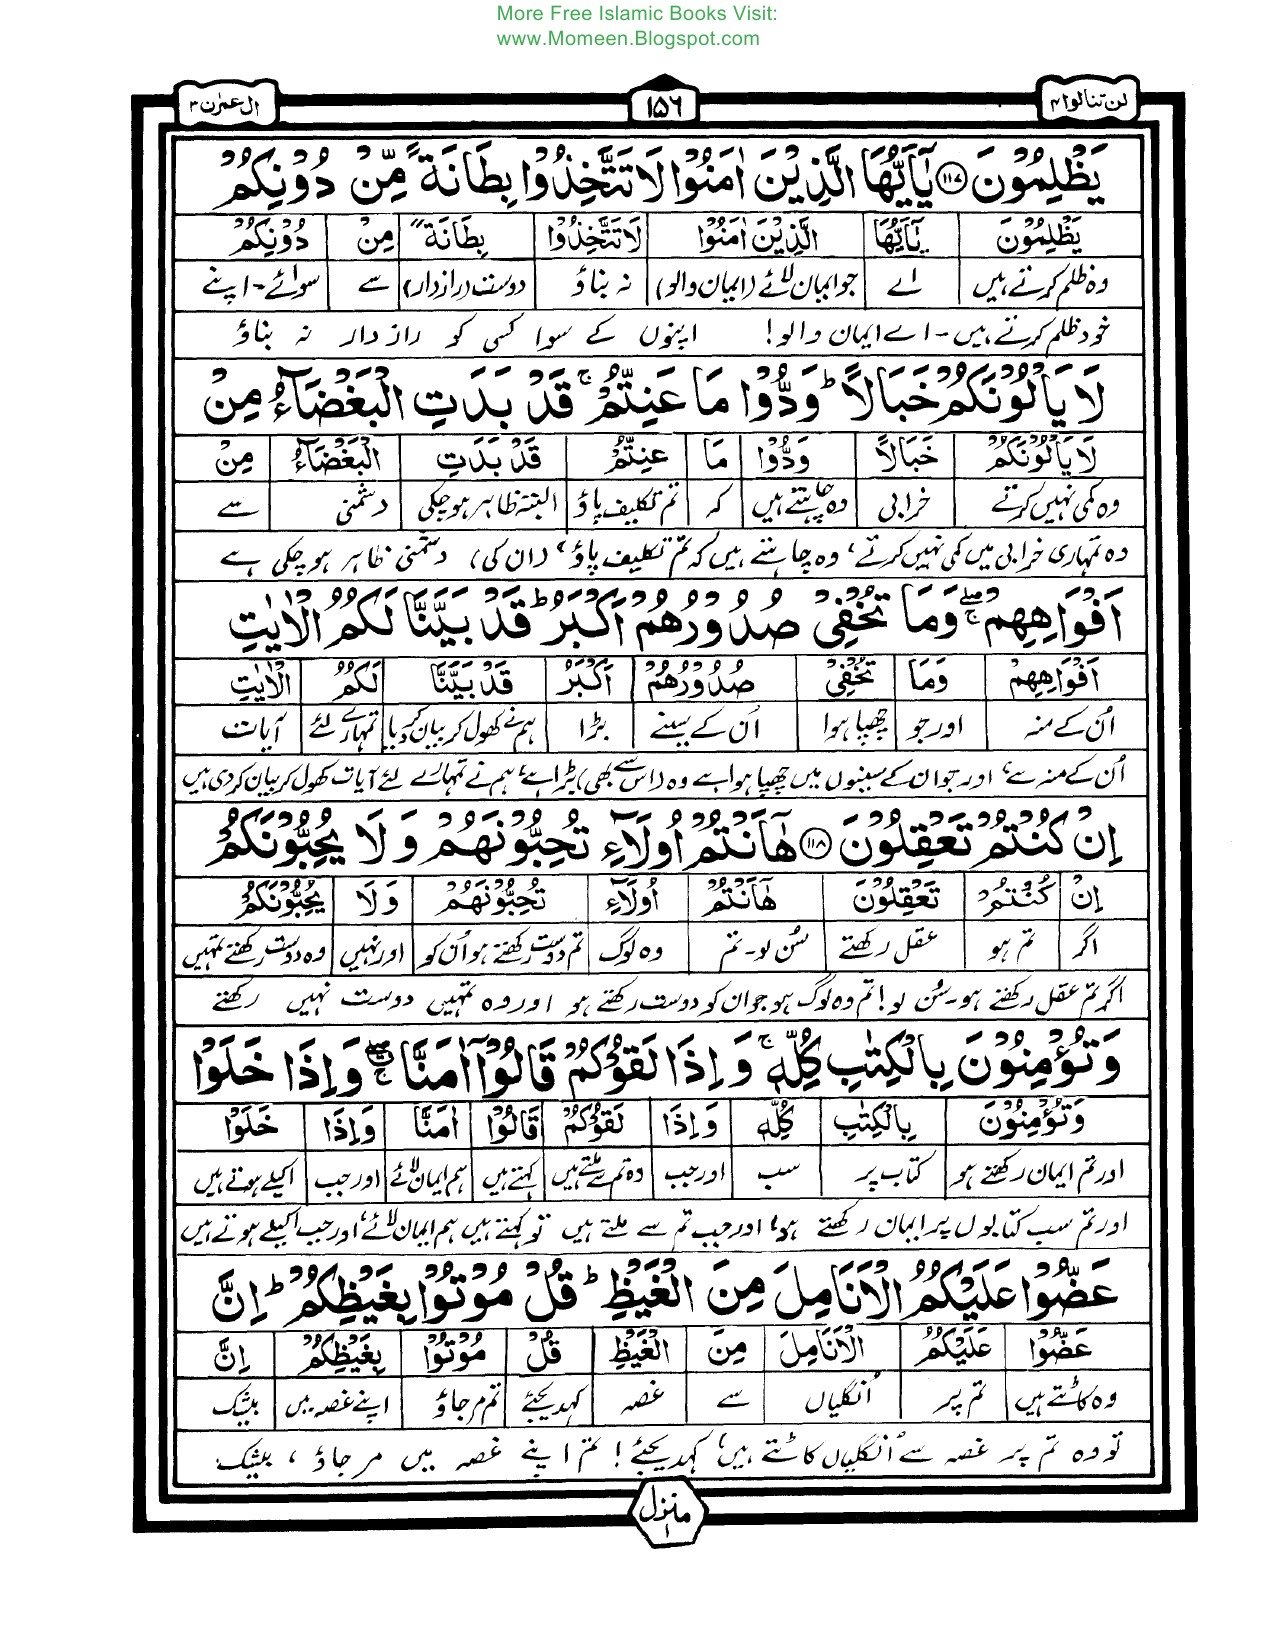 More Free Islamic Books Visit:
www.Momeen.Blogspot.com
لن تنالوا ۴ ۱۵۶ ال عمرٰن ۳
يَظْلِمُوْنَ ۝۱۱۷ يٰۤاَيُّهَا الَّذِيْنَ اٰمَنُوْا لَا تَتَّخِذُوْا بِطَانَةً مِّنْ دُوْنِكُمْ
يَظْلِمُوْنَ يٰۤاَيُّهَا الَّذِيْنَ اٰمَنُوْا لَا تَتَّخِذُوْا بِطَانَةً مِنْ دُوْنِكُمْ
وہ ظلم کرتے ہیں اے جو ایمان لائے (ایمان والو) نہ بناؤ دوست (رازدار) سے سوائے - اپنے
خود ظلم کرتے ہیں - اے ایمان والو! اپنوں کے سوا کسی کو راز دار نہ بناؤ
لَا يَاْلُوْنَكُمْ خَبَالًا ؕ وَدُّوْا مَا عَنِتُّمْ ۚ قَدْ بَدَتِ الْبَغْضَآءُ مِنْ
لَا يَاْلُوْنَكُمْ خَبَالًا وَدُّوْا مَا عَنِتُّمْ قَدْ بَدَتِ الْبَغْضَآءُ مِنْ
وہ کمی نہیں کرتے خرابی وہ چاہتے ہیں کہ تم تکلیف پاؤ البتہ ظاہر ہوچکی دشمنی سے
وہ تمہاری خرابی میں کمی نہیں کرتے، وہ چاہتے ہیں کہ تم تکلیف پاؤ، (ان کی) دشمنی ظاہر ہوچکی ہے
اَفْوَاهِهِمْ ۖۚ وَمَا تُخْفِيْ صُدُوْرُهُمْ اَكْبَرُ ؕ قَدْ بَيَّنَّا لَكُمُ الْاٰيٰتِ
اَفْوَاهِهِمْ وَمَا تُخْفِيْ صُدُوْرُهُمْ اَكْبَرُ قَدْ بَيَّنَّا لَكُمُ الْاٰيٰتِ
اُن کے منہ اور جو چھپا ہوا اُن کے سینے بڑا ہم نے کھول کر بیان کردیا تمہارے لئے آیات
اُن کے منہ سے، اور جو ان کے سینوں میں چھپا ہوا ہے وہ (اس سے بھی) بڑا ہے، ہم نے تمہارے لئے آیات کھول کر بیان کردی ہیں
اِنْ كُنْتُمْ تَعْقِلُوْنَ ۝۱۱۸ هٰۤاَنْتُمْ اُولَآءِ تُحِبُّوْنَهُمْ وَلَا يُحِبُّوْنَكُمْ
اِنْ كُنْتُمْ تَعْقِلُوْنَ هٰۤاَنْتُمْ اُولَآءِ تُحِبُّوْنَهُمْ وَلَا يُحِبُّوْنَكُمْ
اگر تم ہو عقل رکھتے سُن لو - تم وہ لوگ تم دوست رکھتے ہو اُن کو اور نہیں وہ دوست رکھتے تمہیں
اگر تم عقل رکھتے ہو - سُن لو! تم وہ لوگ ہو جو ان کو دوست رکھتے ہو اور وہ تمہیں دوست نہیں رکھتے
وَتُؤْمِنُوْنَ بِالْكِتٰبِ كُلِّهٖ ۚ وَاِذَا لَقُوْكُمْ قَالُوْۤا اٰمَنَّا ۖۚ وَاِذَا خَلَوْا
وَتُؤْمِنُوْنَ بِالْكِتٰبِ كُلِّهٖ وَاِذَا لَقُوْكُمْ قَالُوْۤا اٰمَنَّا وَاِذَا خَلَوْا
اور تم ایمان رکھتے ہو کتاب پر سب اور جب وہ تم سے ملتے ہیں کہتے ہیں ہم ایمان لائے اور جب اکیلے ہوتے ہیں
اور تم سب کتابوں پر ایمان رکھتے ہو، اور جب تم سے ملتے ہیں تو کہتے ہیں ہم ایمان لائے، اور جب اکیلے ہوتے ہیں
عَضُّوْا عَلَيْكُمُ الْاَنَامِلَ مِنَ الْغَيْظِ ؕ قُلْ مُوْتُوْا بِغَيْظِكُمْ ؕ اِنَّ
عَضُّوْا عَلَيْكُمُ الْاَنَامِلَ مِنَ الْغَيْظِ قُلْ مُوْتُوْا بِغَيْظِكُمْ اِنَّ
وہ کاٹتے ہیں تم پر اُنگلیاں سے غصہ کہدیجئے تم مرجاؤ اپنے غصہ میں بیشک
تو وہ تم پر غصہ سے اُنگلیاں کاٹتے ہیں، کہدیجئے! تم اپنے غصہ میں مرجاؤ، بیشک
منزل ۱